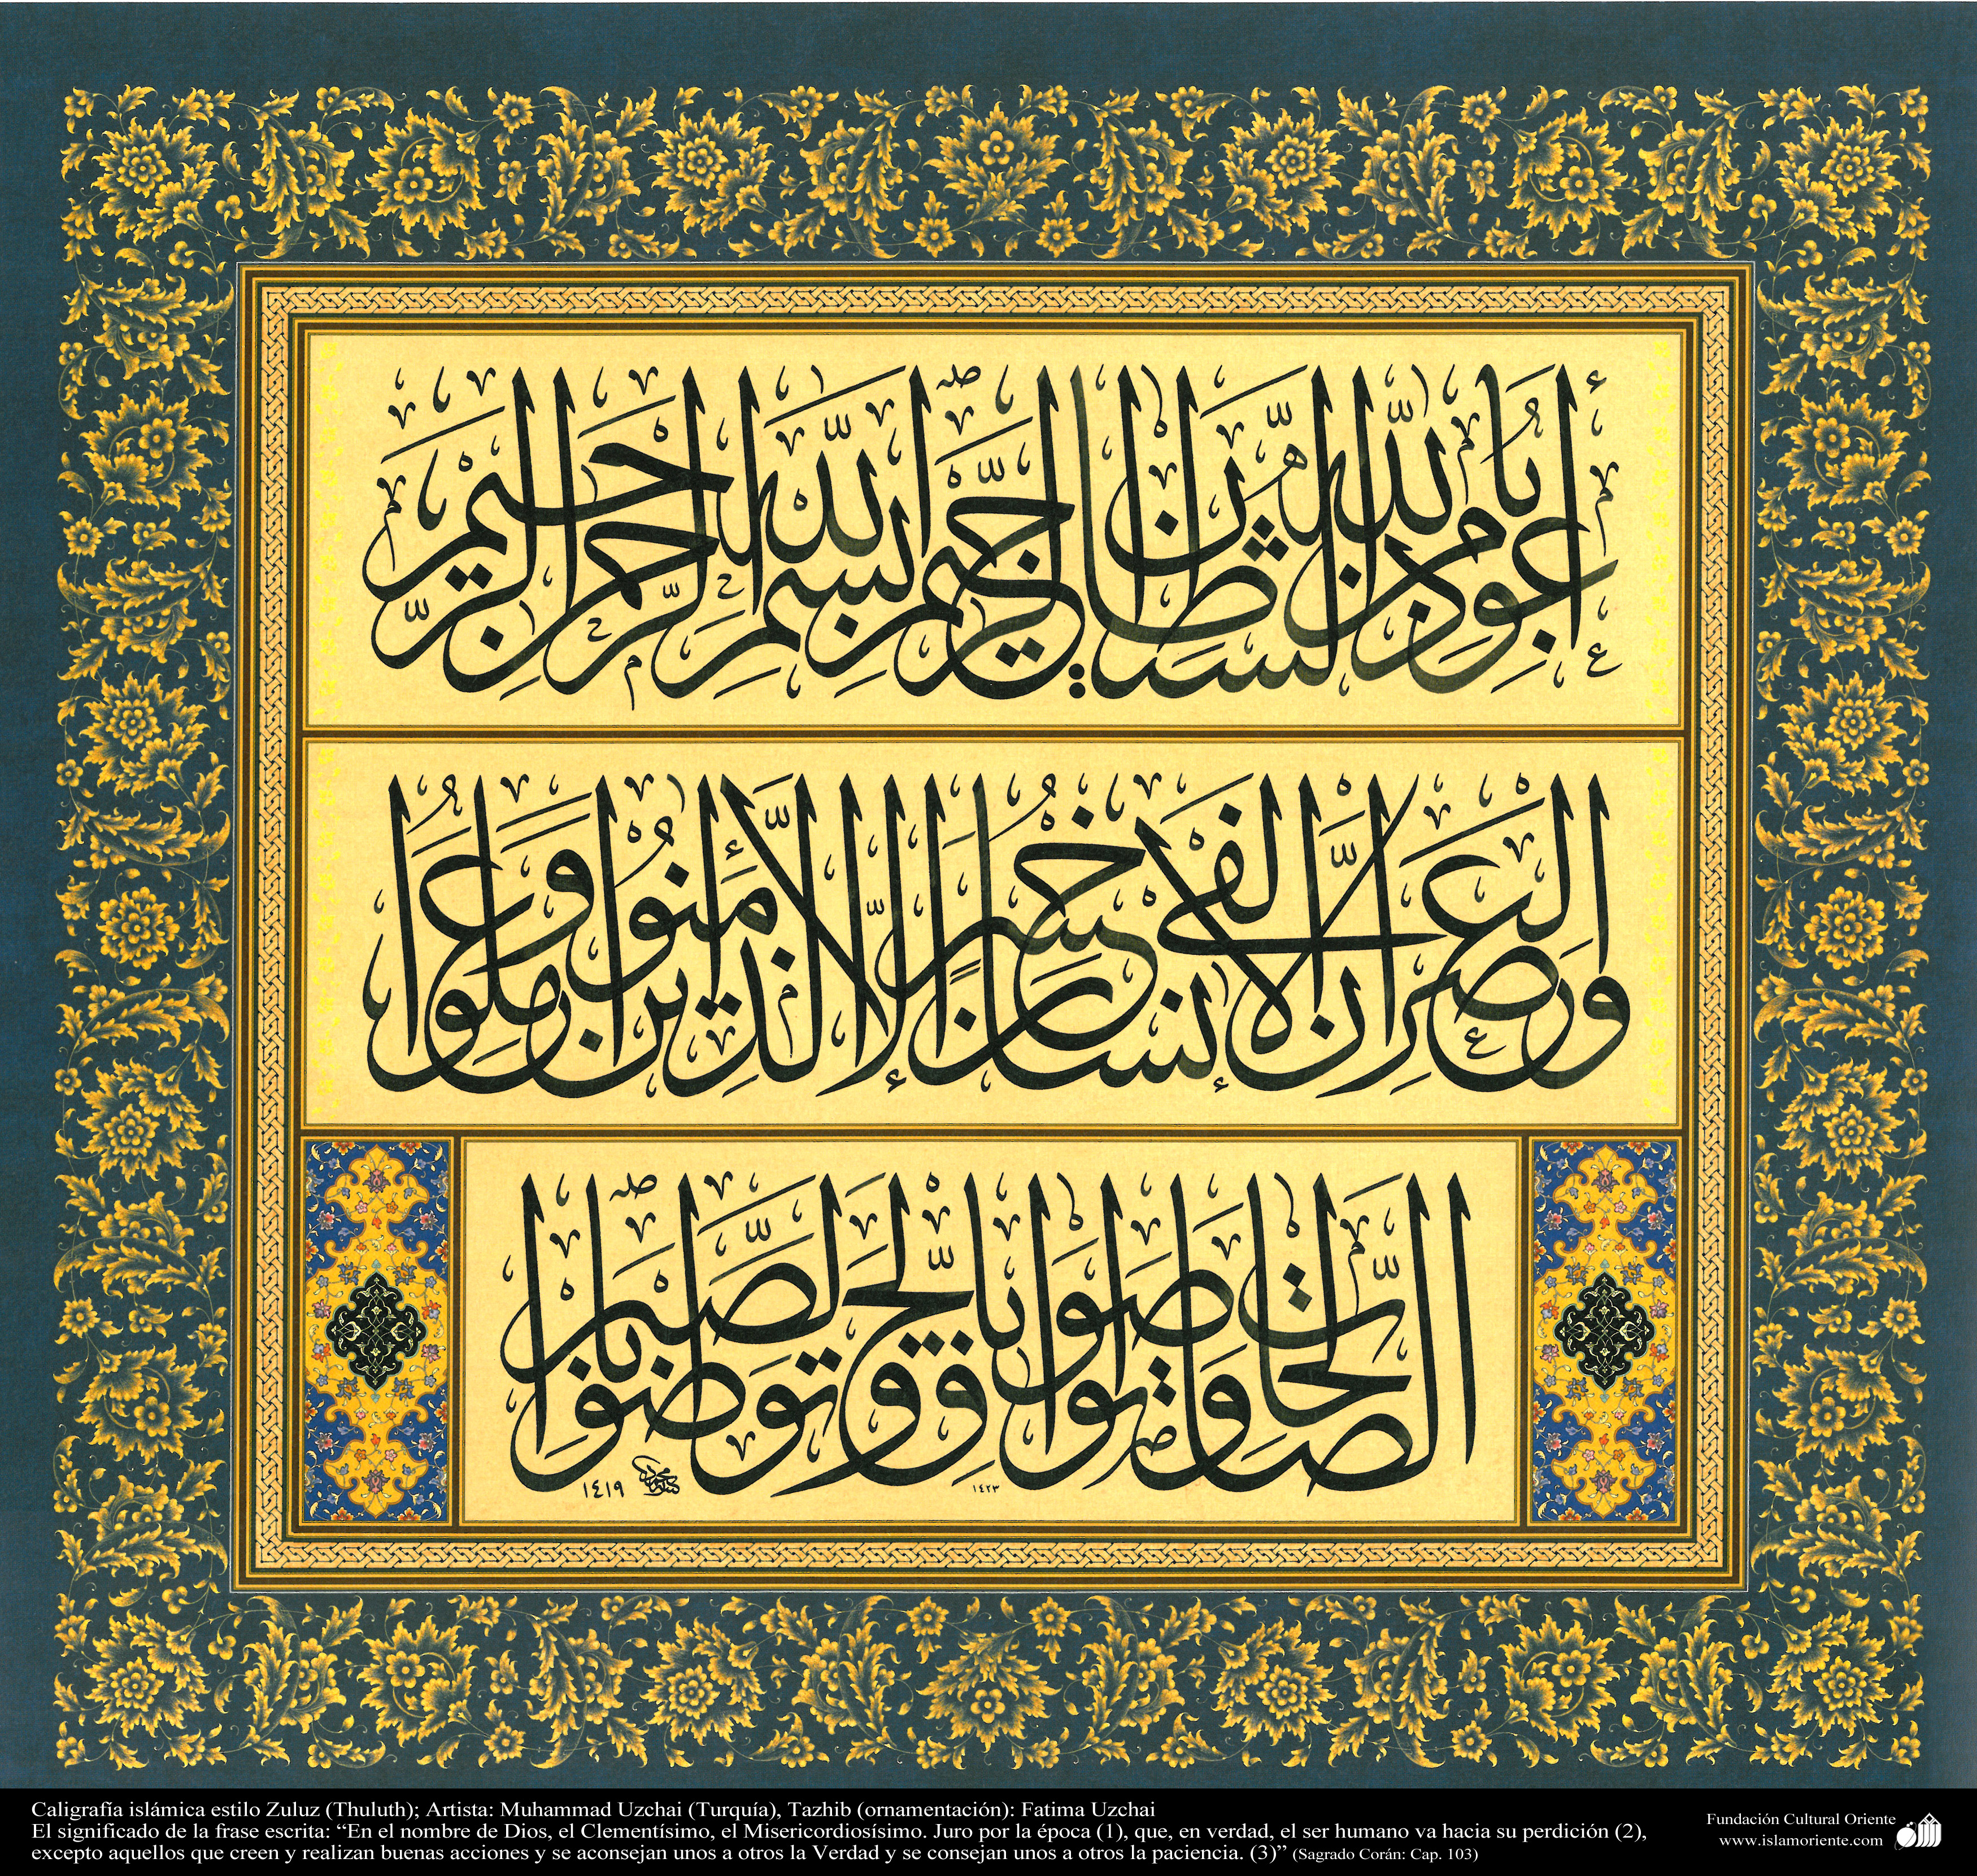 أعوذ بالله من الشيطان الرجيم بسم الله الرحمن الرحيم
والعصر إن الإنسان لفي خسر إلا الذين ءامنوا وعملوا
الصالحات وتواصوا بالحق وتواصوا بالصبر
١٤٢٣
١٤١٩
Caligrafía islámica estilo Zuluz (Thuluth); Artista: Muhammad Uzchai (Turquía), Tazhib (ornamentación): Fatima Uzchai
El significado de la frase escrita: “En el nombre de Dios, el Clementísimo, el Misericordiosísimo. Juro por la época (1), que, en verdad, el ser humano va hacia su perdición (2),
excepto aquellos que creen y realizan buenas acciones y se aconsejan unos a otros la Verdad y se consejan unos a otros la paciencia. (3)” (Sagrado Corán: Cap. 103)
Fundación Cultural Oriente
www.islamoriente.com